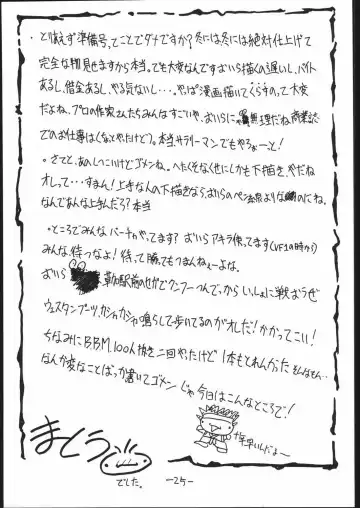 ・とりあえず準備号、てことでダメですか？冬には冬には絶対仕上げて
完全な物見せますから本当。でも大変なんですおいら描くの遅いし、バイト
あるし、借金あるし、やる気ないし…。やっぱ漫画描いてくらすのって大変
だよね、プロの作家さんたちみんなすごいや、おいらにゃ無理だね商業誌
でのお仕事は(なとやったけど)。本当サラリーマンでもやろぉーと！
・さてと、あのしつこいけどゴメンね。へたくそなくせにしかも下描き、やだね
オレって…すまん！上手な人の下描きなら、おいらのペン
なんでみんな上手んだろ？本当
・ところでみんなバーチャやってます？おいらアキラ使ってます(VF1の時から)
みんな、待つなよ！待って勝ってもつまんねぇーよな。
おいら 駅前のセガでクンフーつんでっから、いっしょに戦おうぜ
ウェスタンブーツ、ガシャガシャ鳴らして歩いてるのがオレだ！かかってこい！
ちなみにBBM,100人抜き二回やったけど1本もとれんかった
なんか変なことばっか書いてゴメン じゃ今日はこんなところで！
10年早いんだよ〜
まとう
でした。
-25-